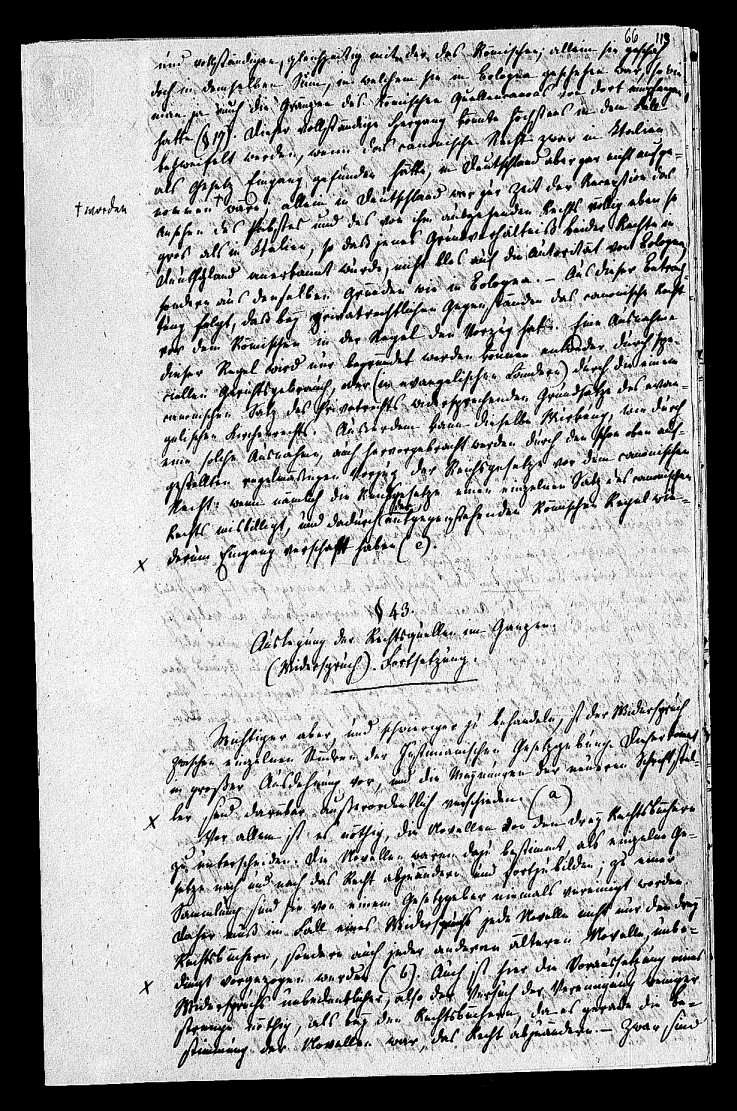 66 113
und vollständigen, gleichzeitig mit der des Römischen; allein sie geschah
doch in demselben Sinn, in welchem sie in Bologna geschehen war, so wie
man ja auch die Gränzen des Römischen Quellenkreises von dort empfangen
hatte (§ 17). Dieser vollständige Hergang könnte höchstens in dem Fall
bezweifelt werden, wenn das canonische Recht zwar in Italien
als Gesetz Eingang gefunden hätte, in Deutschland aber gar nicht aufge-
nommen † wäre; allein in Deutschland war zur Zeit der Reception das
† worden
Ansehen des Pabstes und des von ihm ausgehenden Rechts völlig eben so
gros als in Italien, so daß jenes Grundverhältniß beider Rechte in
Deutschland anerkannt wurde, nicht blos auf die Autorität von Bologna,
sondern aus denselben Gründen wie in Bologna. – Aus dieser Betrach-
tung folgt, daß bey privatrechtlichen Gegenständen das canonische Recht
vor dem Römischen in der Regel den Vorzug hat. Eine Ausnahme
dieser Regel wird nur begründet werden können entweder durch spe-
ciellen Gerichtsgebrauch, oder (in evangelischen Ländern) durch die einem
canonischen Satz des Privatrechts widersprechenden Grundsätze des evan-
gelischen Kirchenrechts. Außerdem kann dieselbe Wirkung, wie durch
eine solche Ausnahme, auch hervorgebracht werden durch den schon oben auf-
gestellten regelmäßigen Vorzug der Reichsgesetze vor dem canonischen
Recht: wenn nämlich die Reichsgesetze einen einzelnen Satz des canonischen
Rechts misbilligt, und dadurch der entgegenstehenden Römischen Regel wie-
x derum Eingang verschafft haben (e).
§ 43.
Auslegung der Rechtsquellen im Ganzen.
(Widerspruch). Fortsetzung.
Wichtiger aber, und schwieriger zu behandeln, ist der Widerspruch
zwischen einzelnen Stücken der Justinianischen Gesetzgebung. Dieser kommt
in großer Ausdehnung vor, und die Meynungen der neueren Schriftstel-
x ler sind darüber außerordentlich verschieden (a).
Vor allem ist es nöthig, die Novellen von den drey Rechtsbüchern
zu unterscheiden. Die Novellen waren dazu bestimmt, als einzelne Ge-
setze nach und nach das Recht abzuändern und fortzubilden, zu einer
Sammlung sind sie von einem Gesetzgeber niemals vereinigt worden.
Daher muß im Fall eines Widerspruchs jede Novelle nicht nur den drey
Rechtsbüchern, sondern auch jeder anderen älteren Novelle, unbe-
x dingt vorgezogen werden (b). Auch ist hier die Voraussetzung eines
Widerspruchs unbedenklicher, also der Versuch der Vereinigung weniger
strenge nöthig, als bey den Rechtsbüchern, da es gerade die Be-
stimmung der Novellen war, das Recht abzuändern. – Zwar sind